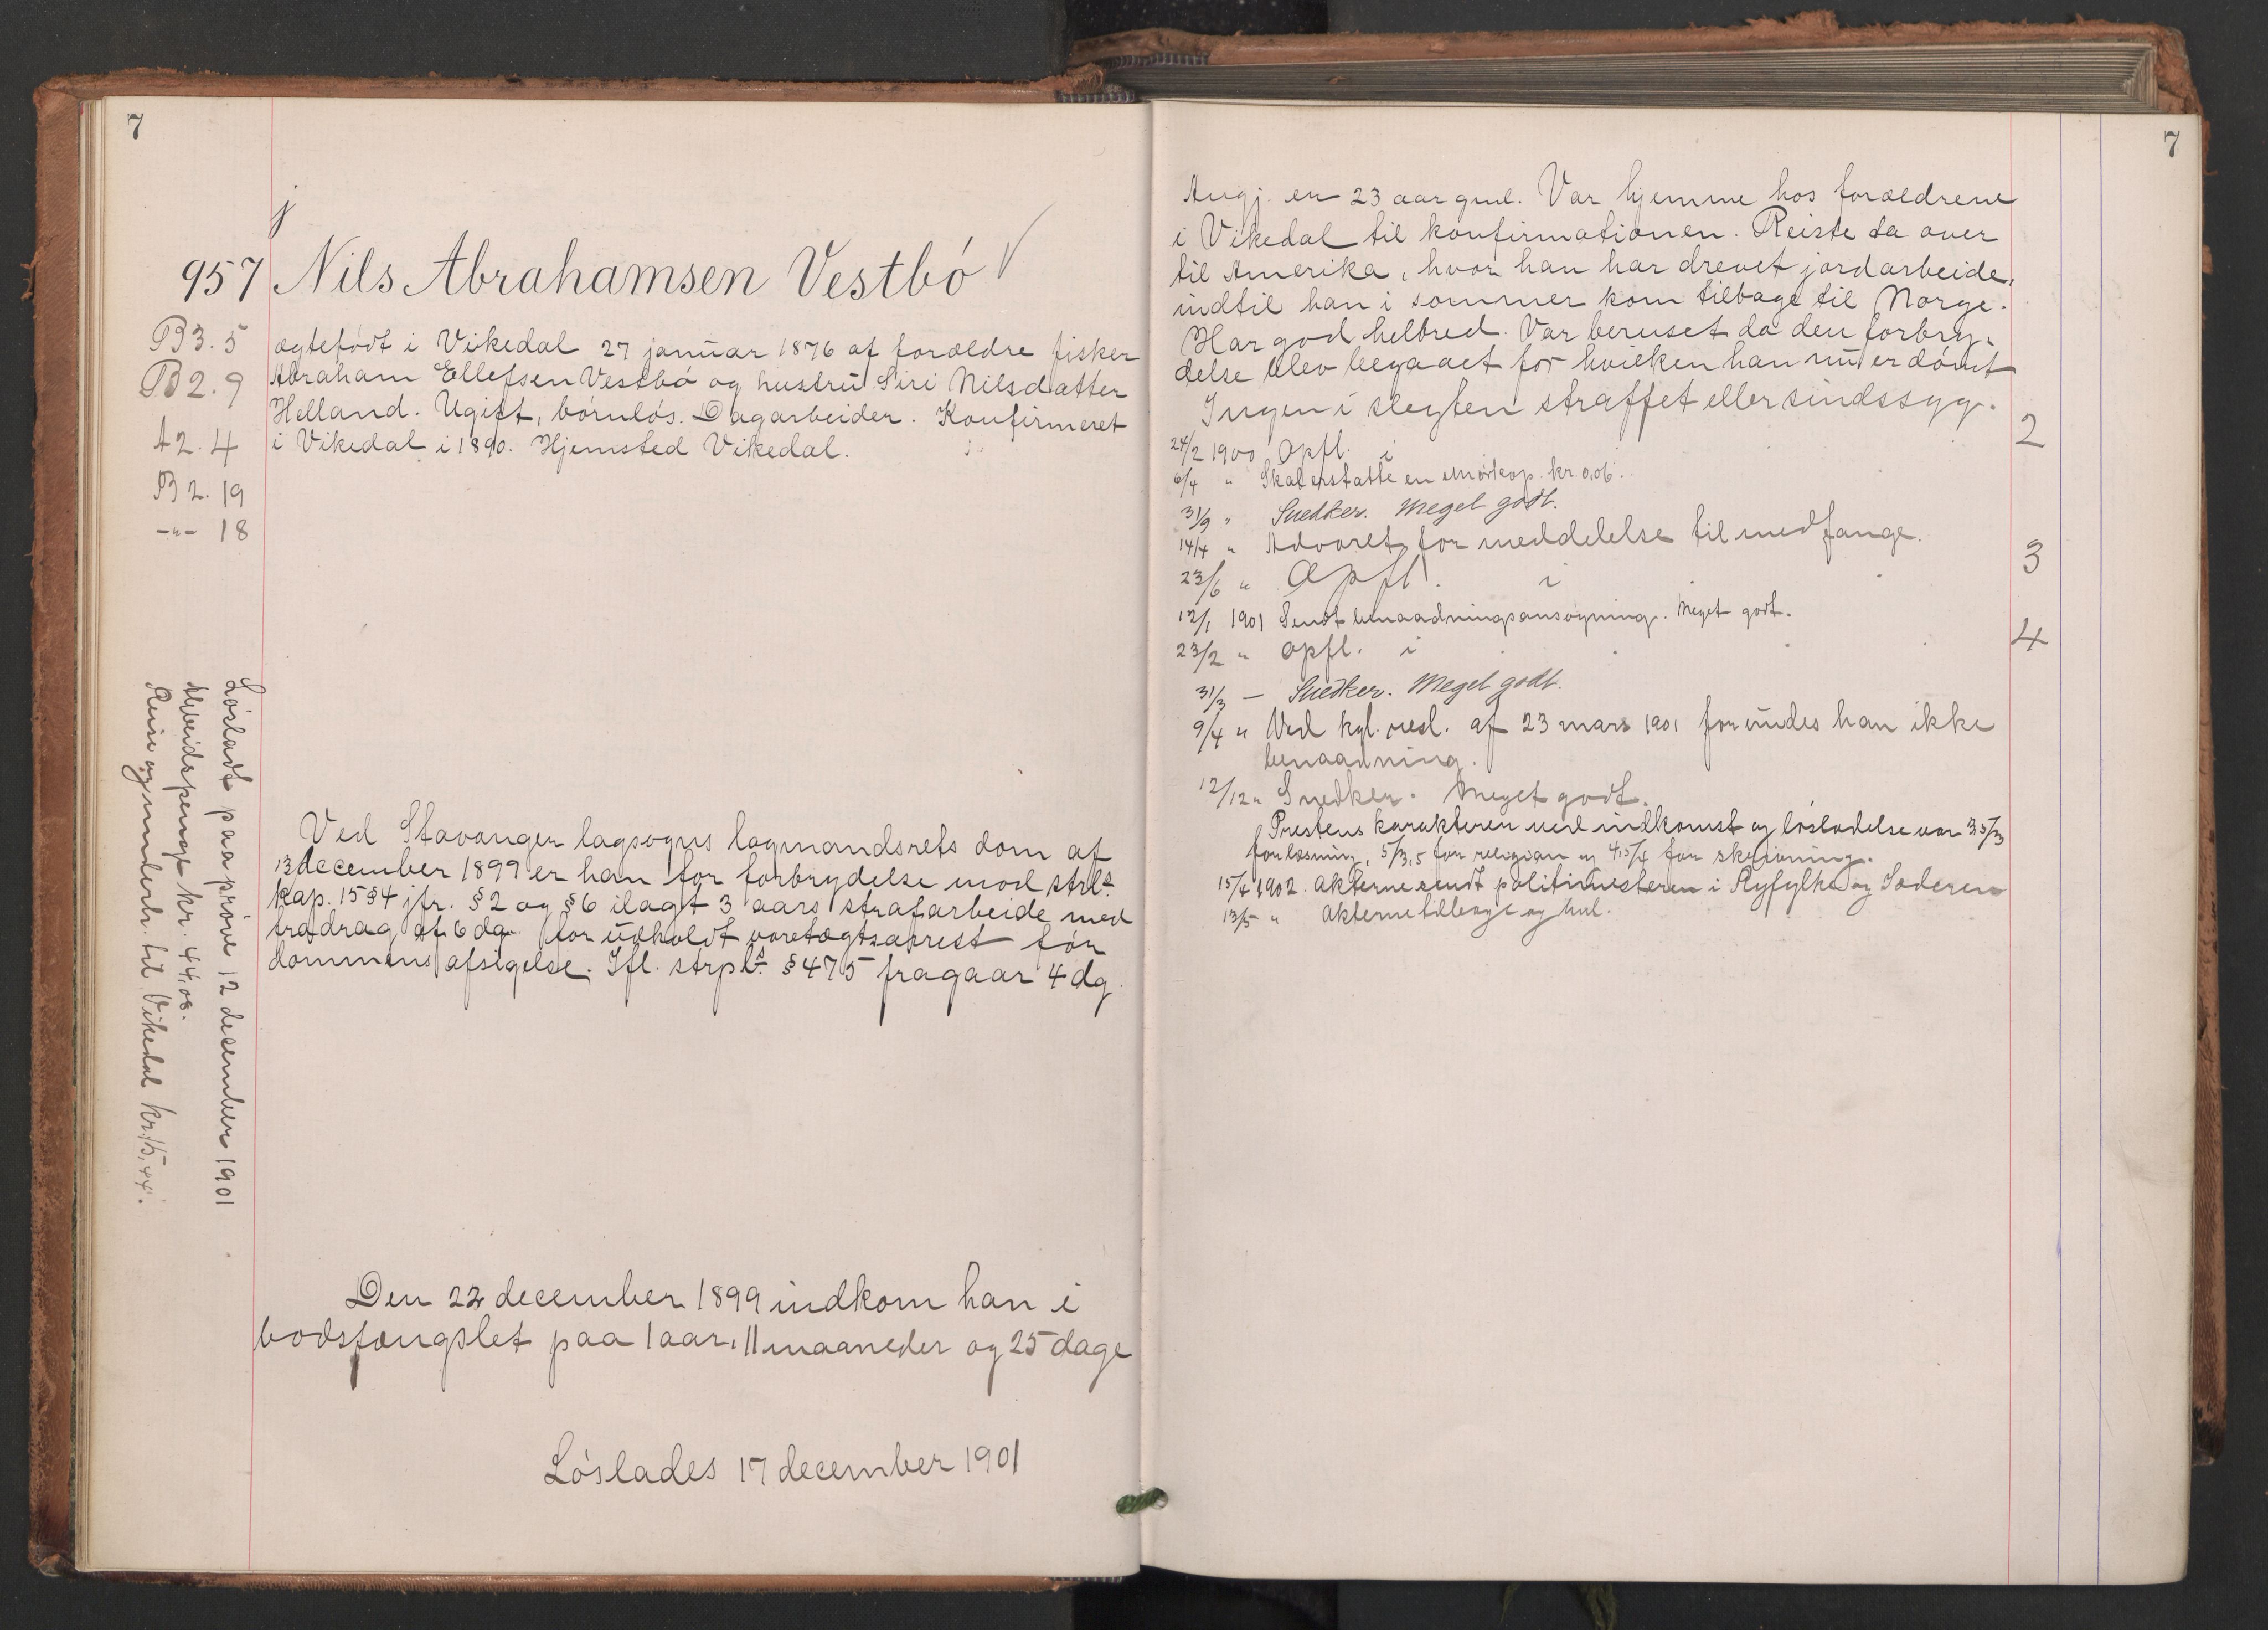 7
j
957 Nils Abrahamsen Vestbö √
B3.5
B2.9
A2.4
B2.19
-"- 18
ægtefödt i Vikedal 27 januar 1876 af forældre fisker
Abraham Ellefsen Vestbö og hustru Siri Nilsdatter
Helland. Ugift, börnlös. Dagarbeider. Konfirmeret
i Vikedal i 1890. Hjemsted Vikedal.
Lösladt paa pröve 12 desember 1901
Arbeidspenge kr. 44,08.
Reise og underh. til Vikedal kr. 15,44.
Ved Stavanger lagsogns lagmandsrets dom af
13 december 1899 er han for forbrydelse mod strl.
kap. 15 §4 jfr. §2 og §6 ilagt 3 aars strafarbeide med
fradrag af 6 dg. for udholdt varetægtsarrest för
dommens afsigelse. Ifl. strpl. §475 fragaar 4 dg.
Den 22 december 1899 indkom han i
bodsfængslet paa 1 aar, 11 maaneder og 25 dage
Löslades 17 december 1901
7
Angj. er 23 aar gml. Var hjemme hos forældrene
i Vikedal til konfirmationen. Reiste da over
til Amerika, hvor han har drevet jordarbeide,
indtil han i sommer kom tilbage til Norge.
Har god helbred. Var beruset da den forbry-
delse blev begaaet for hvilken han nu er dömt
Ingen i slegten straffet eller sindssyg.
24/2 1900 Opfl. i 2
6/4 " Skal erstatte en kop. kr. 0,06.
31/3 " Snedker. Meget godt.
14/4 " Advaret for meddelelse til medfange.
23/6 " Opfl. i 3
12/1 1901 Sendt benaadningsansögning. Meget godt.
23/2 " opfl. i 4
31/3 — Snedker. Meget godt.
9/4 " Ved kgl. resl. af 23 mars 1901 forundes han ikke
benaadning.
12/12 " Snedker. Meget godt.
Prestens karakterer ved indkomst og lösladelse var 3,5/3
for læsning, 5/3,5 for religion og 4,5/4 for skrivning.
15/4 1902. Akterne sendt politimesteren i Ryfylke og Jæderen
13/5 " Akterne tilbage og hul.